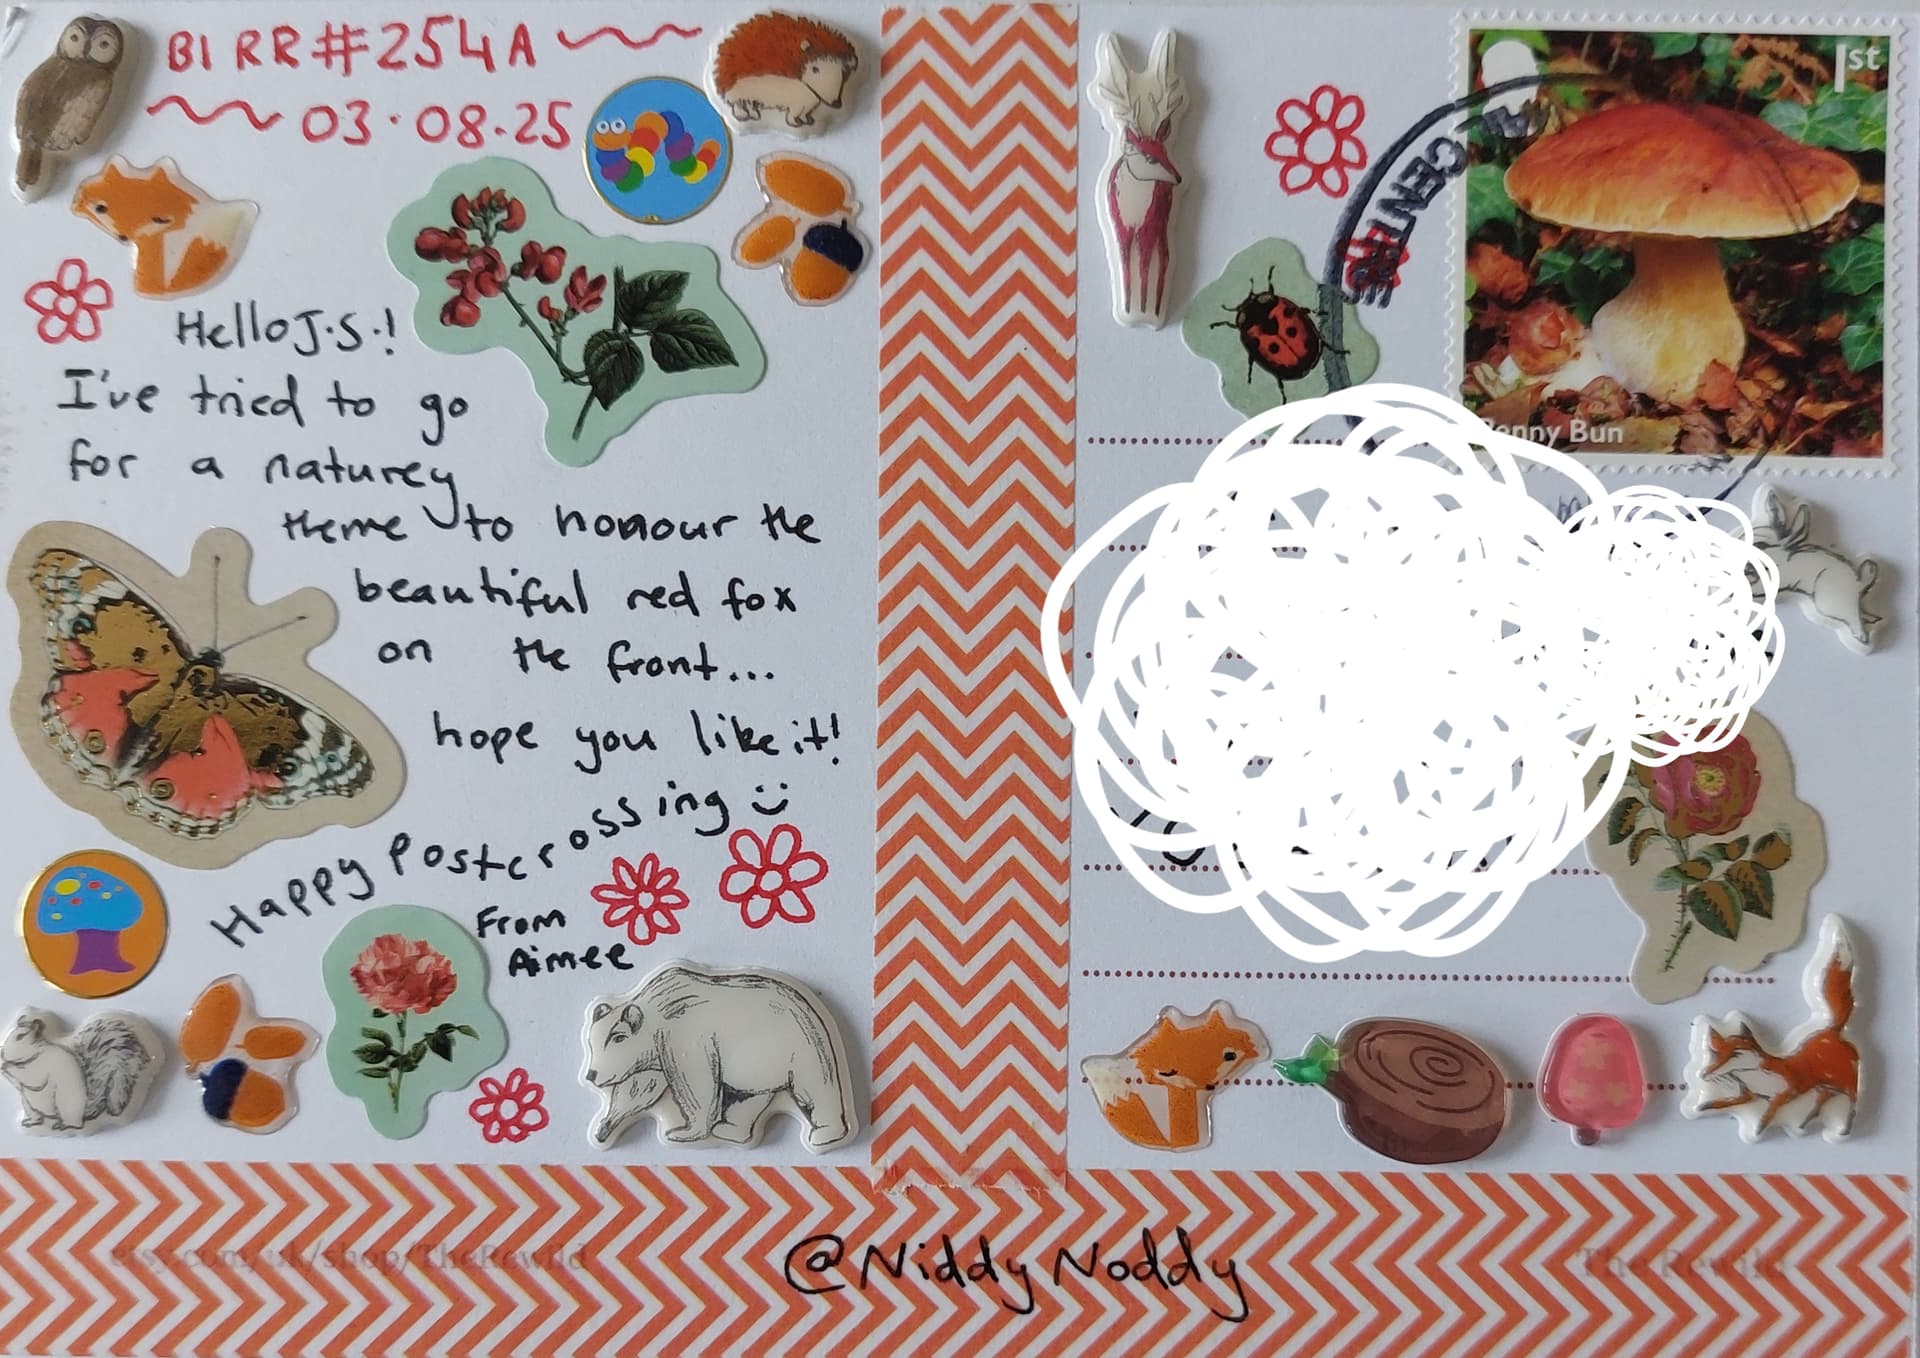 BIRR#254A
03.08.25
Hello J.S.!
I've tried to go
for a naturey
theme to honour the
beautiful red fox
on the front...
hope you like it!
Happy Postcrossing
From
Aimee
1st
CENTRE
Penny Bun
etsy.com/uk/shop/TheRewild
@NiddyNoddy
The Rewild